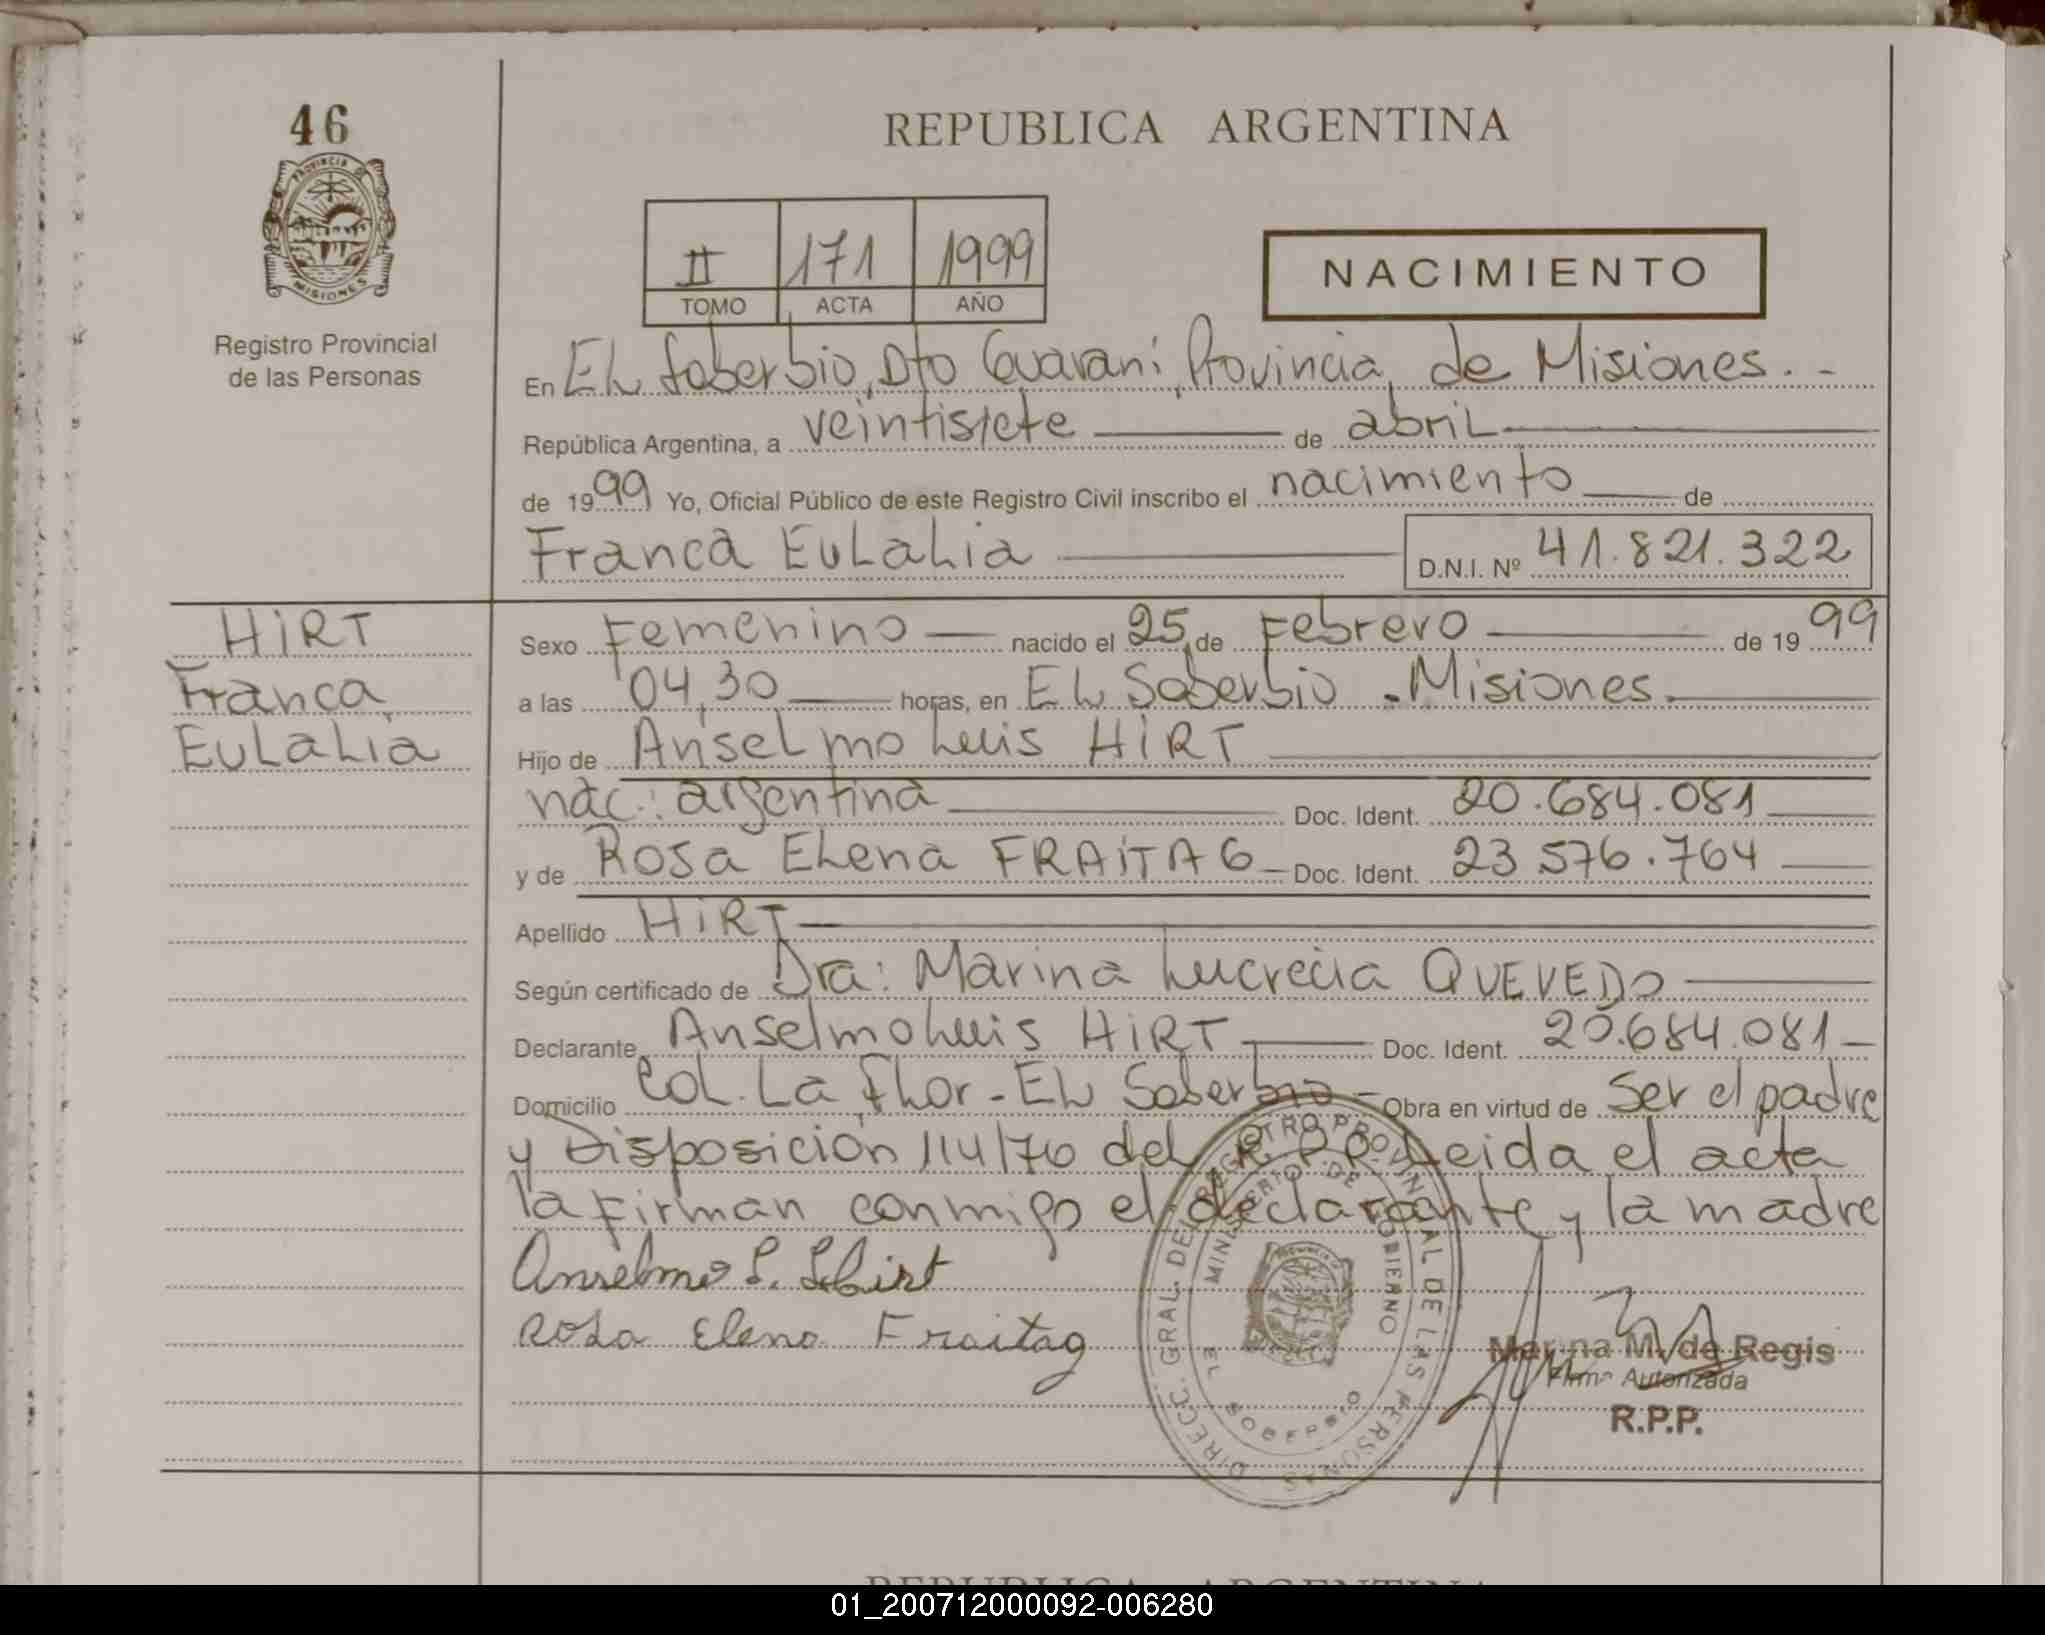 46
PROVINCIA DE
MISIONES
Registro Provincial
de las Personas
REPUBLICA ARGENTINA
II 171 1999
TOMO ACTA AÑO
NACIMIENTO
En EL Soberbio, Dto Guarani, Provincia de Misiones. -
República Argentina, a veintisiete de abril
de 1999 Yo, Oficial Público de este Registro Civil inscribo el nacimiento de
Franca EuLaLia D.N.I. Nº 41.821.322
HiRT
Franca
EuLaLia
Sexo Femenino nacido el 25 de Febrero de 1999
a las 04,30 horas, en EL Soberbio - Misiones.
Hijo de AnseLmo Luis HiRT
nac: argentina Doc. Ident. 20.684.081
y de Rosa ELena FRAiTAG Doc. Ident. 23.576.764
Apellido HiRT
Según certificado de Dra: Marina Lucrecia QUEVEDO
Declarante Anselmo Luis HiRT Doc. Ident. 20.684.081
Domicilio Col. La Flor - EL Soberbio - Obra en virtud de Ser el padre
y Disposición 114/76 del R.P.P. Leida el acta
la firman conmigo el declarante y la madre
Anselmo L. Hirt
Rosa Elena Fraitag
DIRECC. GRAL. DEL REGISTRO PROVINCIAL DE LAS PERSONAS
MINISTERIO DE GOBIERNO
EL SOBERBIO
Marina M. de Regis
Firma Autorizada
R.P.P.
REPUBLICA ARGENTINA
01_200712000092-006280